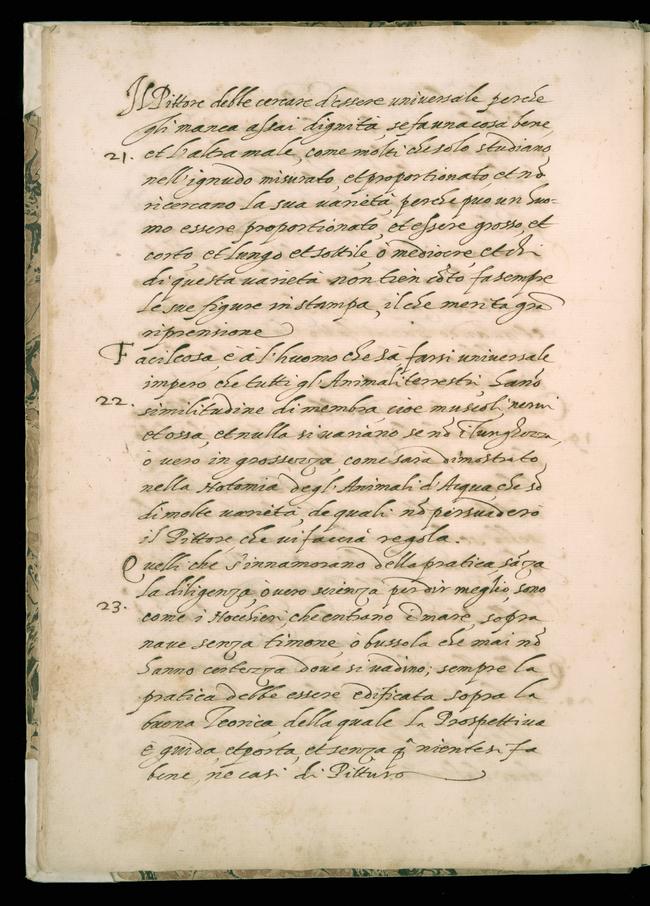 Il Pittore debbe cercare d'essere universale perche
gli manca assai dignità se fa una cosa bene,
21. et l'altra male, come molti che solo studiano
nell'ignudo misurato, et proportionato, et nõ
ricercano la sua varietà, perche può un huo-
mo essere proportionato, et essere grosso, et
corto, et lungo et sottile ò mediocre et chi
di questa varietà non tien cõto fa sempre
le sue figure in stampa, il che merita grã
riprensione
Facil cosa è à l'huomo che sà farsi universale
impero che tutti gl'Animali terestri hanõ
22. similitudine di membra cioe muscoli, nervi
et ossa, et nulla si variano se nõ ĩ lunghezza
ò vero in grossezza, come sarà dimostrato
nella Notomia degl'Animali d'Acqua che sõ
di molte varietà, de quali nõ persuadero
il Pittore che vi faccia regola.
Quelli che s'innamorano della pratica sãza
la diligenza, ò vero scienza per dir meglio, sono
23. come i Nocchieri, che entrano ĩ mare, sopra
nave senza timone ò bussola che mai nõ
hanno certezza dove si vadino; sempre la
pratica debbe essere edificata sopra la
buona Teorica della quale la Prospettiva
è guida et porta, et senza qª niente si fa
bene, ne casi di Pittura